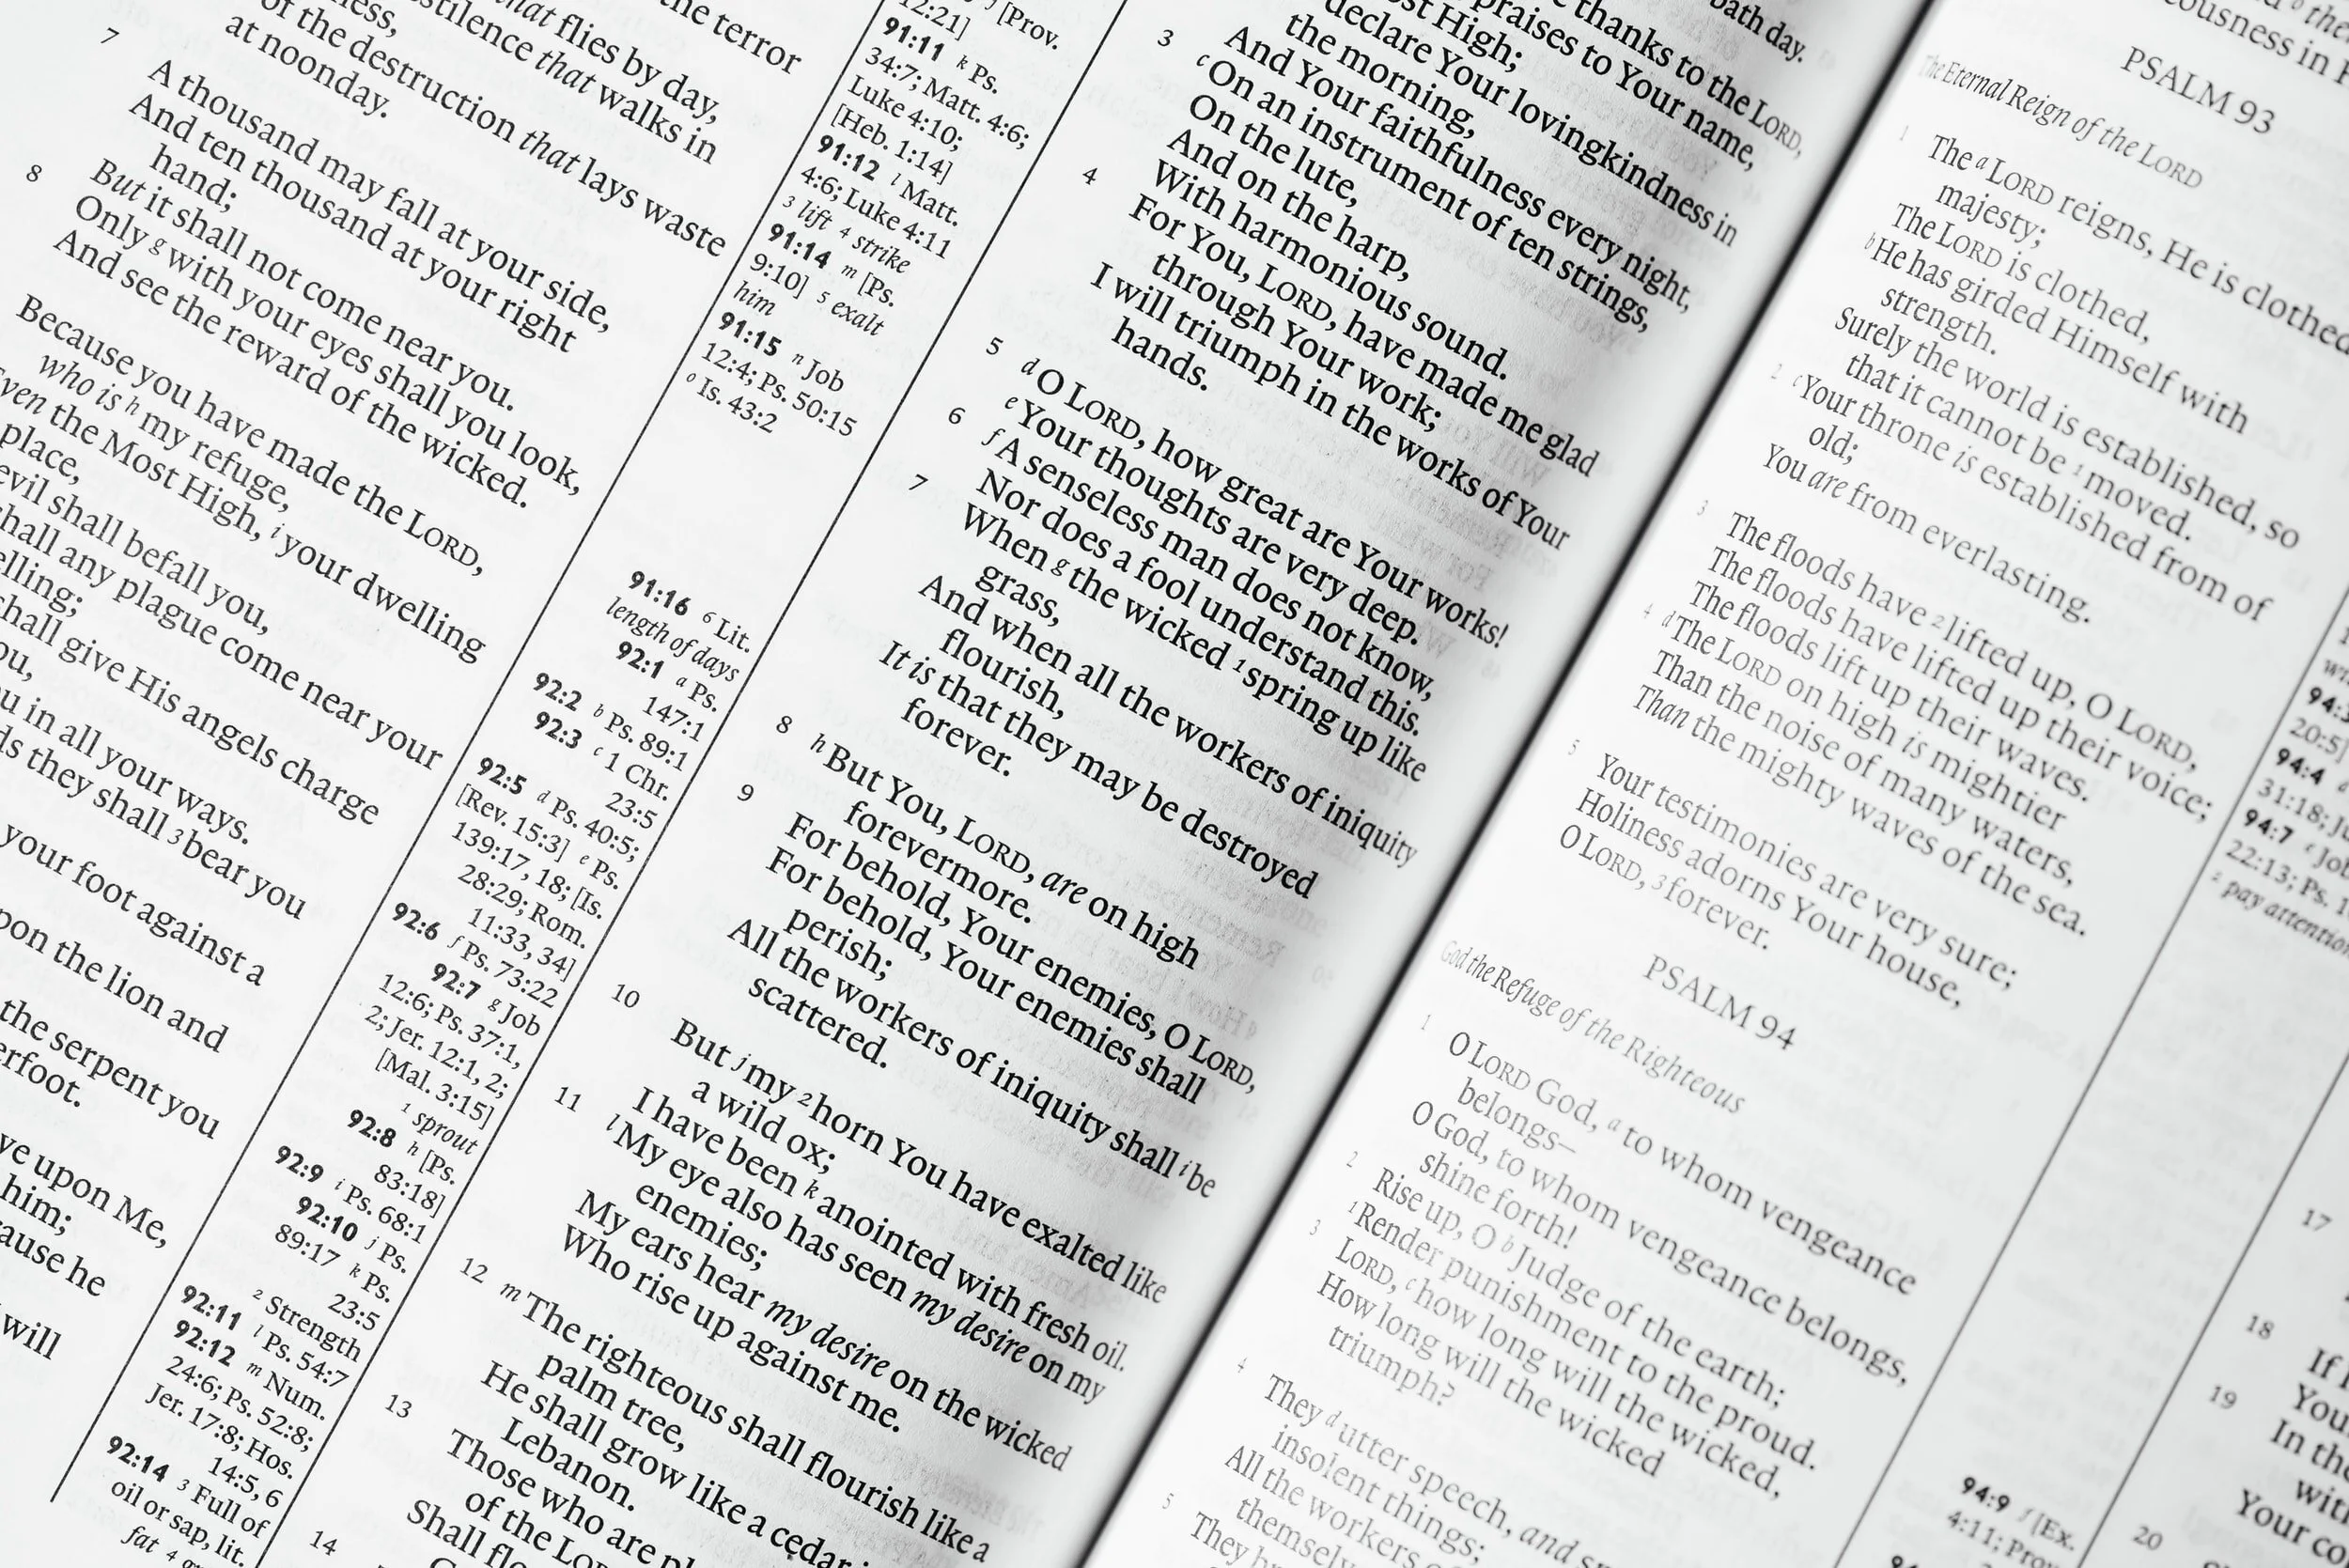 the terror
that flies by day,
that walks in
of the destruction that lays waste
at noonday.
7
A thousand may fall at your side,
And ten thousand at your right
hand;
But it shall not come near you.
8
Only g with your eyes shall you look,
And see the reward of the wicked.
Because you have made the LORD,
who is h my refuge,
the Most High, i your dwelling
place,
evil shall befall you,
any plague come near your
give His angels charge
in all your ways.
they shall 3 bear you
your foot against a
the lion and
the serpent you
upon Me,
him;
he
will
12:21] j [Prov.
91:11 k Ps.
34:7; Matt. 4:6;
Luke 4:10;
[Heb. 1:14]
91:12 l Matt.
4:6; Luke 4:11
3 lift 4 strike
91:14 m [Ps.
9:10] 5 exalt
him
91:15 n Job
12:4; Ps. 50:15
o Is. 43:2
91:16 6 Lit.
length of days
92:1 a Ps.
147:1
92:2 b Ps. 89:1
92:3 c 1 Chr.
23:5
92:5 d Ps. 40:5;
[Rev. 15:3] e Ps.
139:17, 18; [Is.
28:29; Rom.
11:33, 34]
92:6 f Ps. 73:22
92:7 g Job
12:6; Ps. 37:1,
2; Jer. 12:1, 2;
[Mal. 3:15]
1 sprout
92:8 h [Ps.
83:18]
92:9 i Ps. 68:1
92:10 j Ps.
89:17 k Ps.
23:5
2 Strength
92:11 l Ps. 54:7
92:12 m Num.
24:6; Ps. 52:8;
Jer. 17:8; Hos.
14:5, 6
92:14 3 Full of
oil or sap, lit.
fat 4
day.
thanks to the LORD,
praises to Your name,
Most High;
declare Your lovingkindness in
the morning,
And Your faithfulness every night,
3
c On an instrument of ten strings,
On the lute,
And on the harp,
With harmonious sound.
4
For You, LORD, have made me glad
through Your work;
I will triumph in the works of Your
hands.
5
d O LORD, how great are Your works!
e Your thoughts are very deep.
6
f A senseless man does not know,
Nor does a fool understand this.
7
When g the wicked 1 spring up like
grass,
And when all the workers of iniquity
flourish,
It is that they may be destroyed
forever.
8
h But You, LORD, are on high
forevermore.
9
For behold, Your enemies, O LORD,
For behold, Your enemies shall
perish;
All the workers of iniquity shall i be
scattered.
10
But j my 2 horn You have exalted like
a wild ox;
I have been k anointed with fresh oil.
11
l My eye also has seen my desire on my
enemies;
My ears hear my desire on the wicked
Who rise up against me.
12
m The righteous shall flourish like a
palm tree,
He shall grow like a cedar
Lebanon.
13
Those who are
of the LORD
Shall
14
PSALM 93
The Eternal Reign of the LORD
1
The a LORD reigns, He is clothed
majesty;
The LORD is clothed,
b He has girded Himself with
strength.
Surely the world is established, so
that it cannot be 1 moved.
2
c Your throne is established from of
old;
You are from everlasting.
3
The floods have 2 lifted up, O LORD,
The floods have lifted up their voice;
The floods lift up their waves.
4
d The LORD on high is mightier
Than the noise of many waters,
Than the mighty waves of the sea.
5
Your testimonies are very sure;
Holiness adorns Your house,
O LORD, 3 forever.
PSALM 94
God the Refuge of the Righteous
1
O LORD God, a to whom vengeance
belongs—
O God, to whom vengeance belongs,
shine forth!
2
Rise up, O b Judge of the earth;
1 Render punishment to the proud.
3
LORD, c how long will the wicked,
How long will the wicked
triumph?
4
They d utter speech, and
insolent things;
All the workers
5
They
20:5]
94:4
31:18;
94:7 e Job
22:13; Ps.
2 pay attention
94:9 f [Ex.
4:11; Prov.
17
18
If
19
In the
20